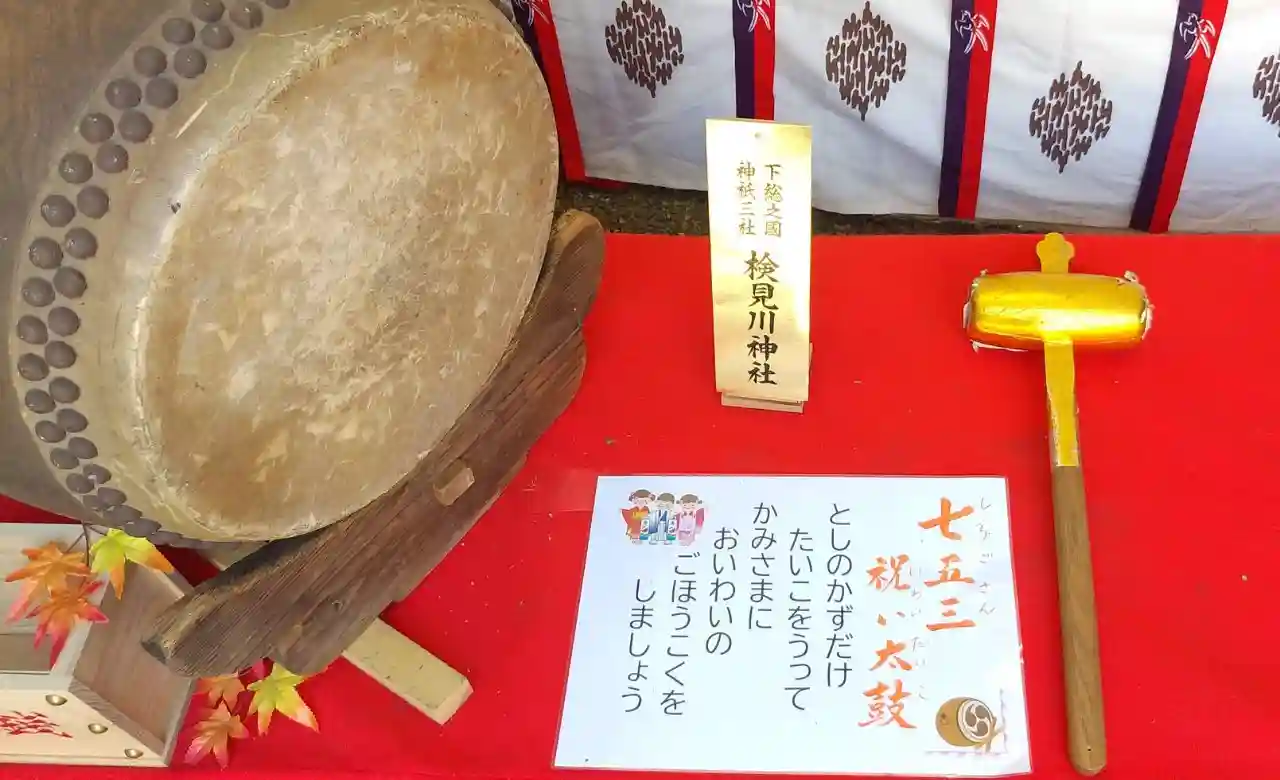 下総之國
神祇三社
検見川神社
七五三
しちごさん
祝い太鼓
いわいたいこ
としのかずだけ
たいこをうって
かみさまに
おいわいの
ごほうこくを
しましょう